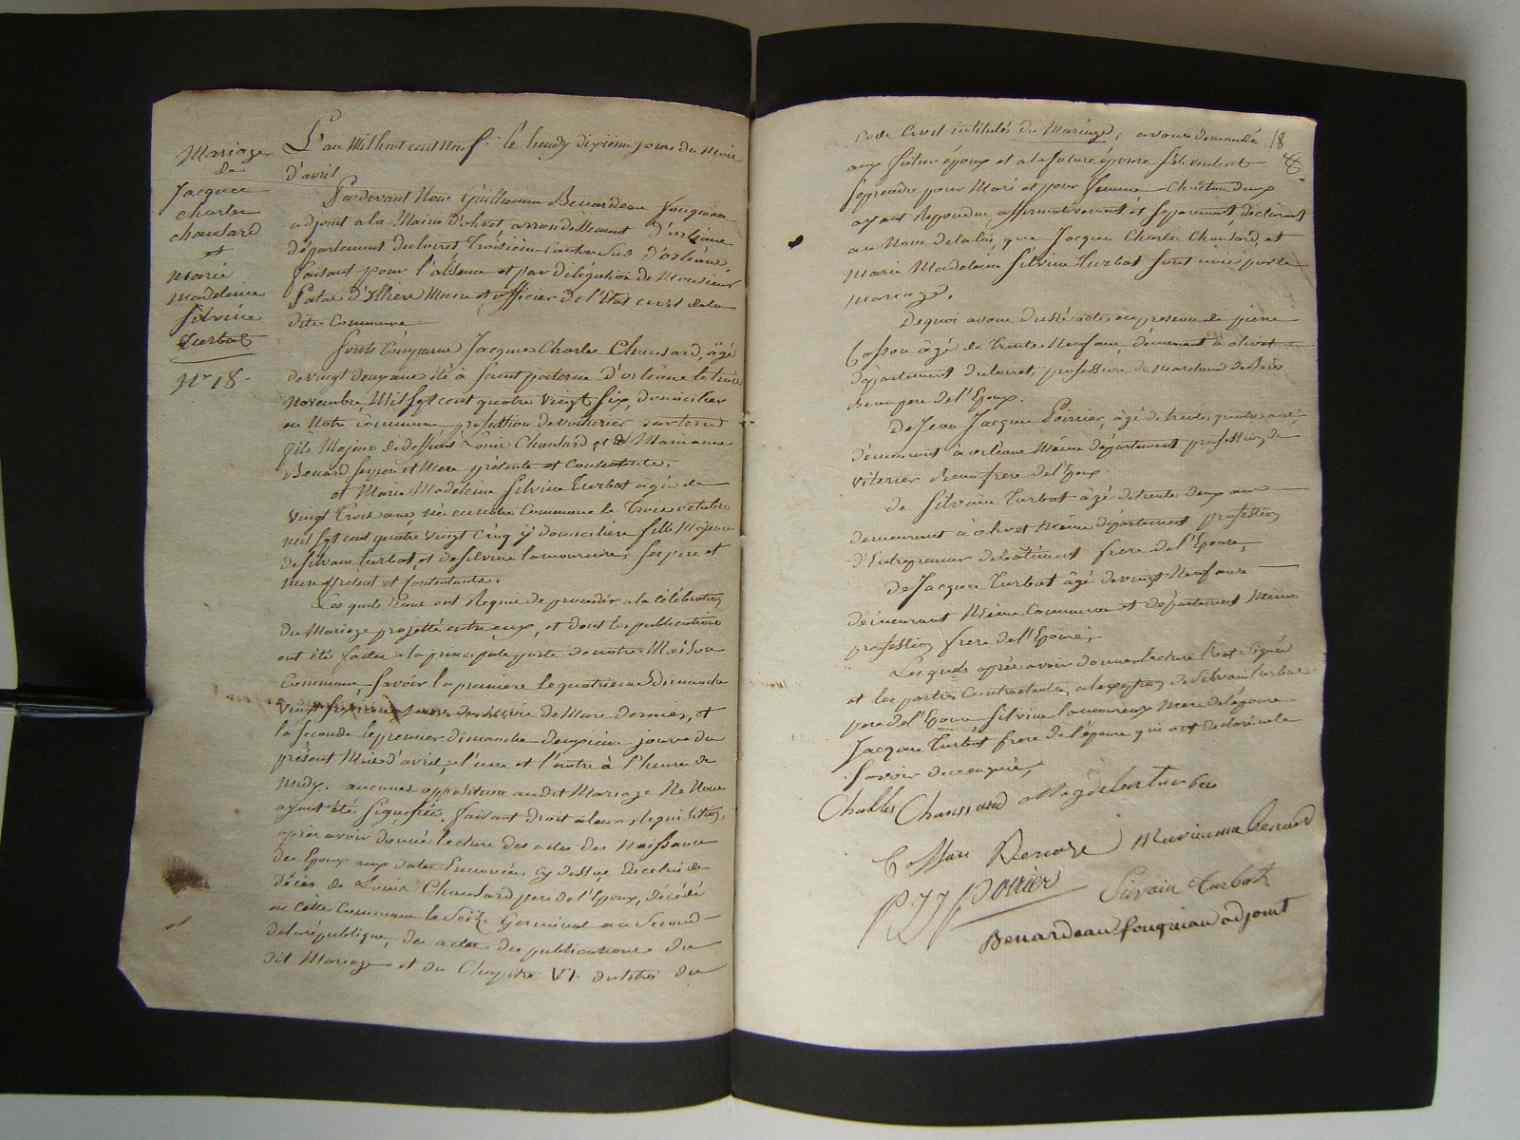 Mariage
de
Jacques
Charles
Chausard
et
Marie
Madeleine
Silvine
Turbat
Nr 18.
L'an Mil huit cent Neuf le lundy dixieme jour du mois
d'avril
Pardevant Nous Guillaume Benardeau fouqueau
adjoint a la Mairie d'olivet arrondissement d'orléans
département du Loiret Troisieme Canton Sud d'orléans
faisant pour l'absence et par délégation de Monsieur
d'illiers Maire et officier de l'Etat civil de la
dite Commune
sont Comparus Jacques Charles Chaussard, âgé
de vingt deux ans né à saint paterne d'orléans le trois
novembre Mil sept cent quatre vingt six, domicilier
en Notre commune profession de
fils Majeur de deffunt Louis Chausard et de Marianne
Benard ses pere et Mere présente et Consentante.
et Marie Madeleine Silvine Turbat âgée de
vingt trois ans, née en notre Commune le Trois octobre
mil sept cent quatre vingt cinq y domiciliere fille Majeure
de Silvain Turbat, et de Silvine lamoureux, ses pere et
mere présent et Consentants.
Les quels Nous ont Requis de proceder a la célébration
du Mariage projetté entre eux, et dont les publications
ont été faites a la principale porte de notre Maison
Commune, savoir la premiere le quatrieme dimanche
vingt sixieme jour du Mois de Mars dernier, et
la seconde le premier dimanche deuxieme jour du
présent Mois d'avril, l'une et l'autre à l'heure de
midy. aucune opposition audit Mariage Ne Nous
ayant été signifiée, faisant droit à leur réquisition,
après avoir donné lecture des actes de Naissance
des Epoux aux dates Enoncées cy dessus, De celui de
décès de Louis Chausard pere de l'Epoux, décédé
en cette Commune le Seize Germinal an Second
de la république, des actes de publications du
dit Mariage et du Chapitre VI. du titre du
code Civil intitulé du Mariage, avons demandé
18
aux futur époux et a la future épouse s'ils veulent
se prendre pour Mari et pour femme Chacun d'eux
ayant Répondu affirmativement et séparément, déclarons
au Nom de la loi, que Jacques Charles Chausard, et
Marie Madeleine Silvine Turbat sont unis par le
mariage.
De quoi avons dressé acte, en presence de pierre
Cossou âgé de Trente Neuf ans, demeurant à olivet
département du loiret, profession de marchand de Bois
beau pere de l'Epoux.
De Jean Jacques Poirier, âgé de trente quatre ans,
demeurant à orléans Même département profession de
vitrier Beau frere de l'Epoux.
de Silvain Turbat âgé de trente deux ans
demeurant à olivet Même département profession
d'Entrepreneur de batiment frere de l'Epouse,
De Jacques Turbat âgé de vingt Neuf ans
demeurant Même Commune et département Même
profession frere de l'Epouse.
Lesquels après avoir donner lecture l'ont Signée
et les parties Contractantes, a l'exception de Silvain Turbat
pere de l'Epouse Silvine lamoureux Mere de l'épouse
Jacques Turbat frere de l'épouse qui ont déclaré ne le
Savoir de ce enquis.
Charles Chaussard Magdelene Turbat
Cossou Marianne Benard
P J J Poirier Silvain Turbat
Benardeau fouqueau adjoint